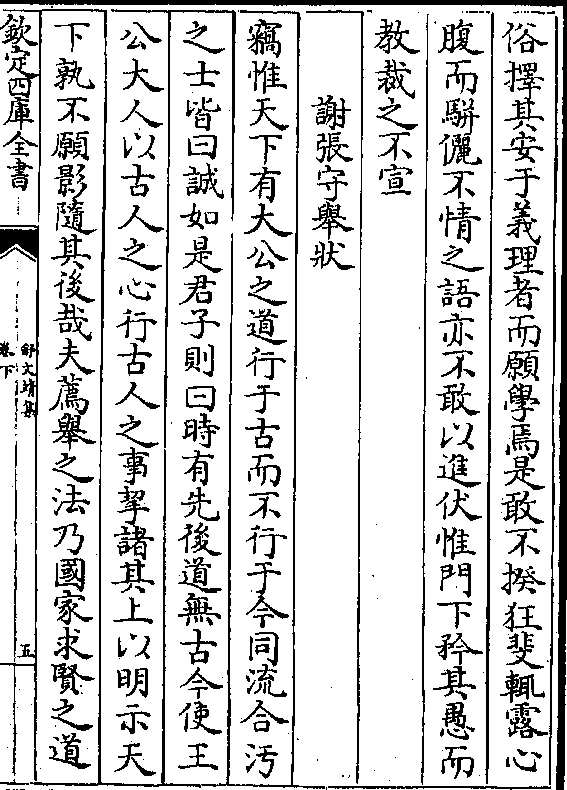 俗擇其安于義理者而願學焉是敢不揆狂斐輒露心
腹而駢儷不情之語亦不敢以進伏惟門下矜其愚而
教裁之不宣
謝張守舉狀
竊惟天下有大公之道行于古而不行于今同流合汚
之士皆曰誠如是君子則曰時有先後道無古今使王
公大人以古人之心行古人之事挈諸其上以明示天
下孰不願影隨其後哉夫薦舉之法乃國家求賢之道
欽定四庫全書
舒文靖集
卷下
五